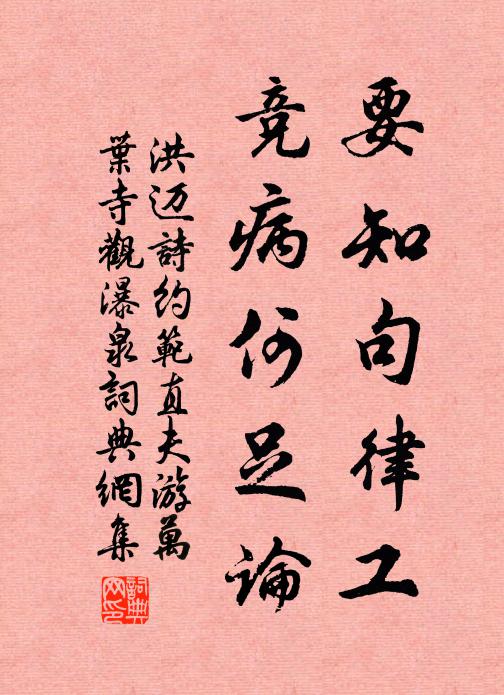 要知句律工
竞病何足論
洪迈詩約範直夫游萬
葉寺觀瀑泉詞典網集
詞典
网印